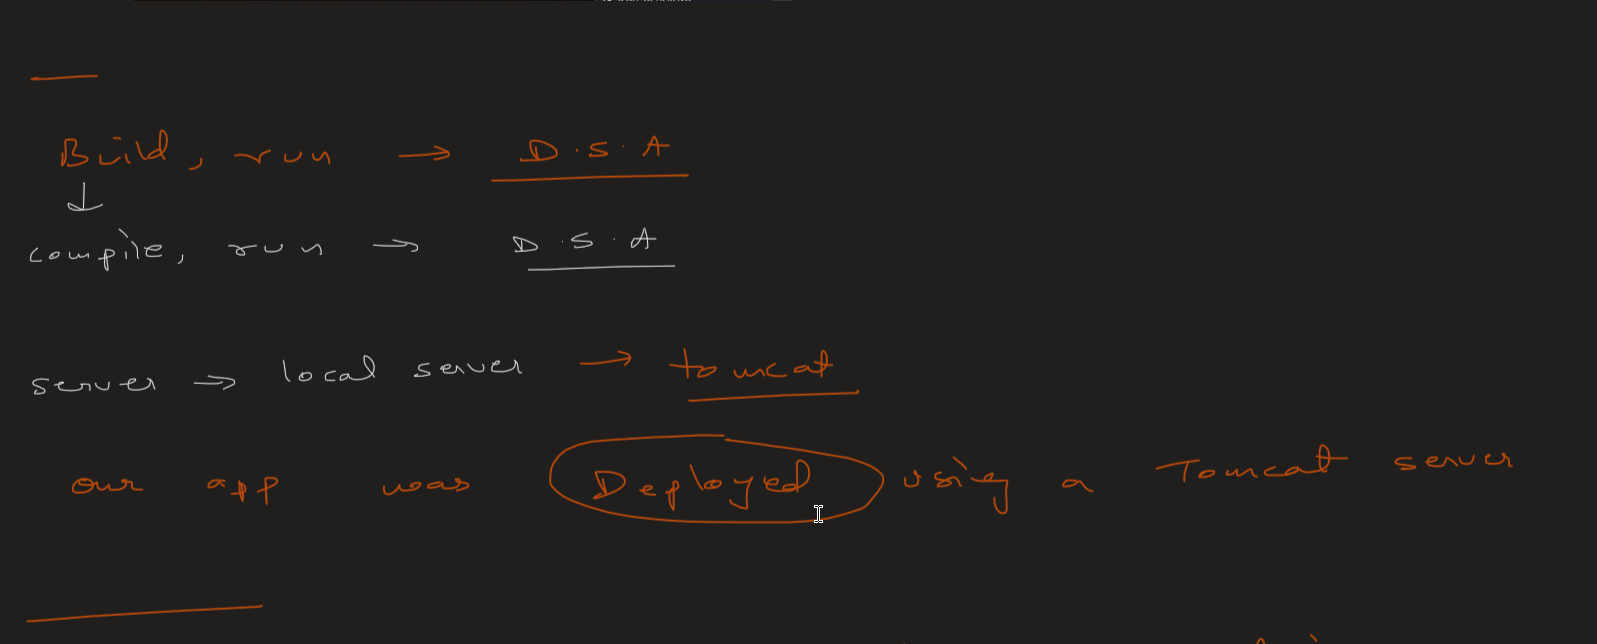 Build, run → D.S.A
↓
compile, run → D.S.A
server → local server → tomcat
our app was Deployed using a Tomcat server